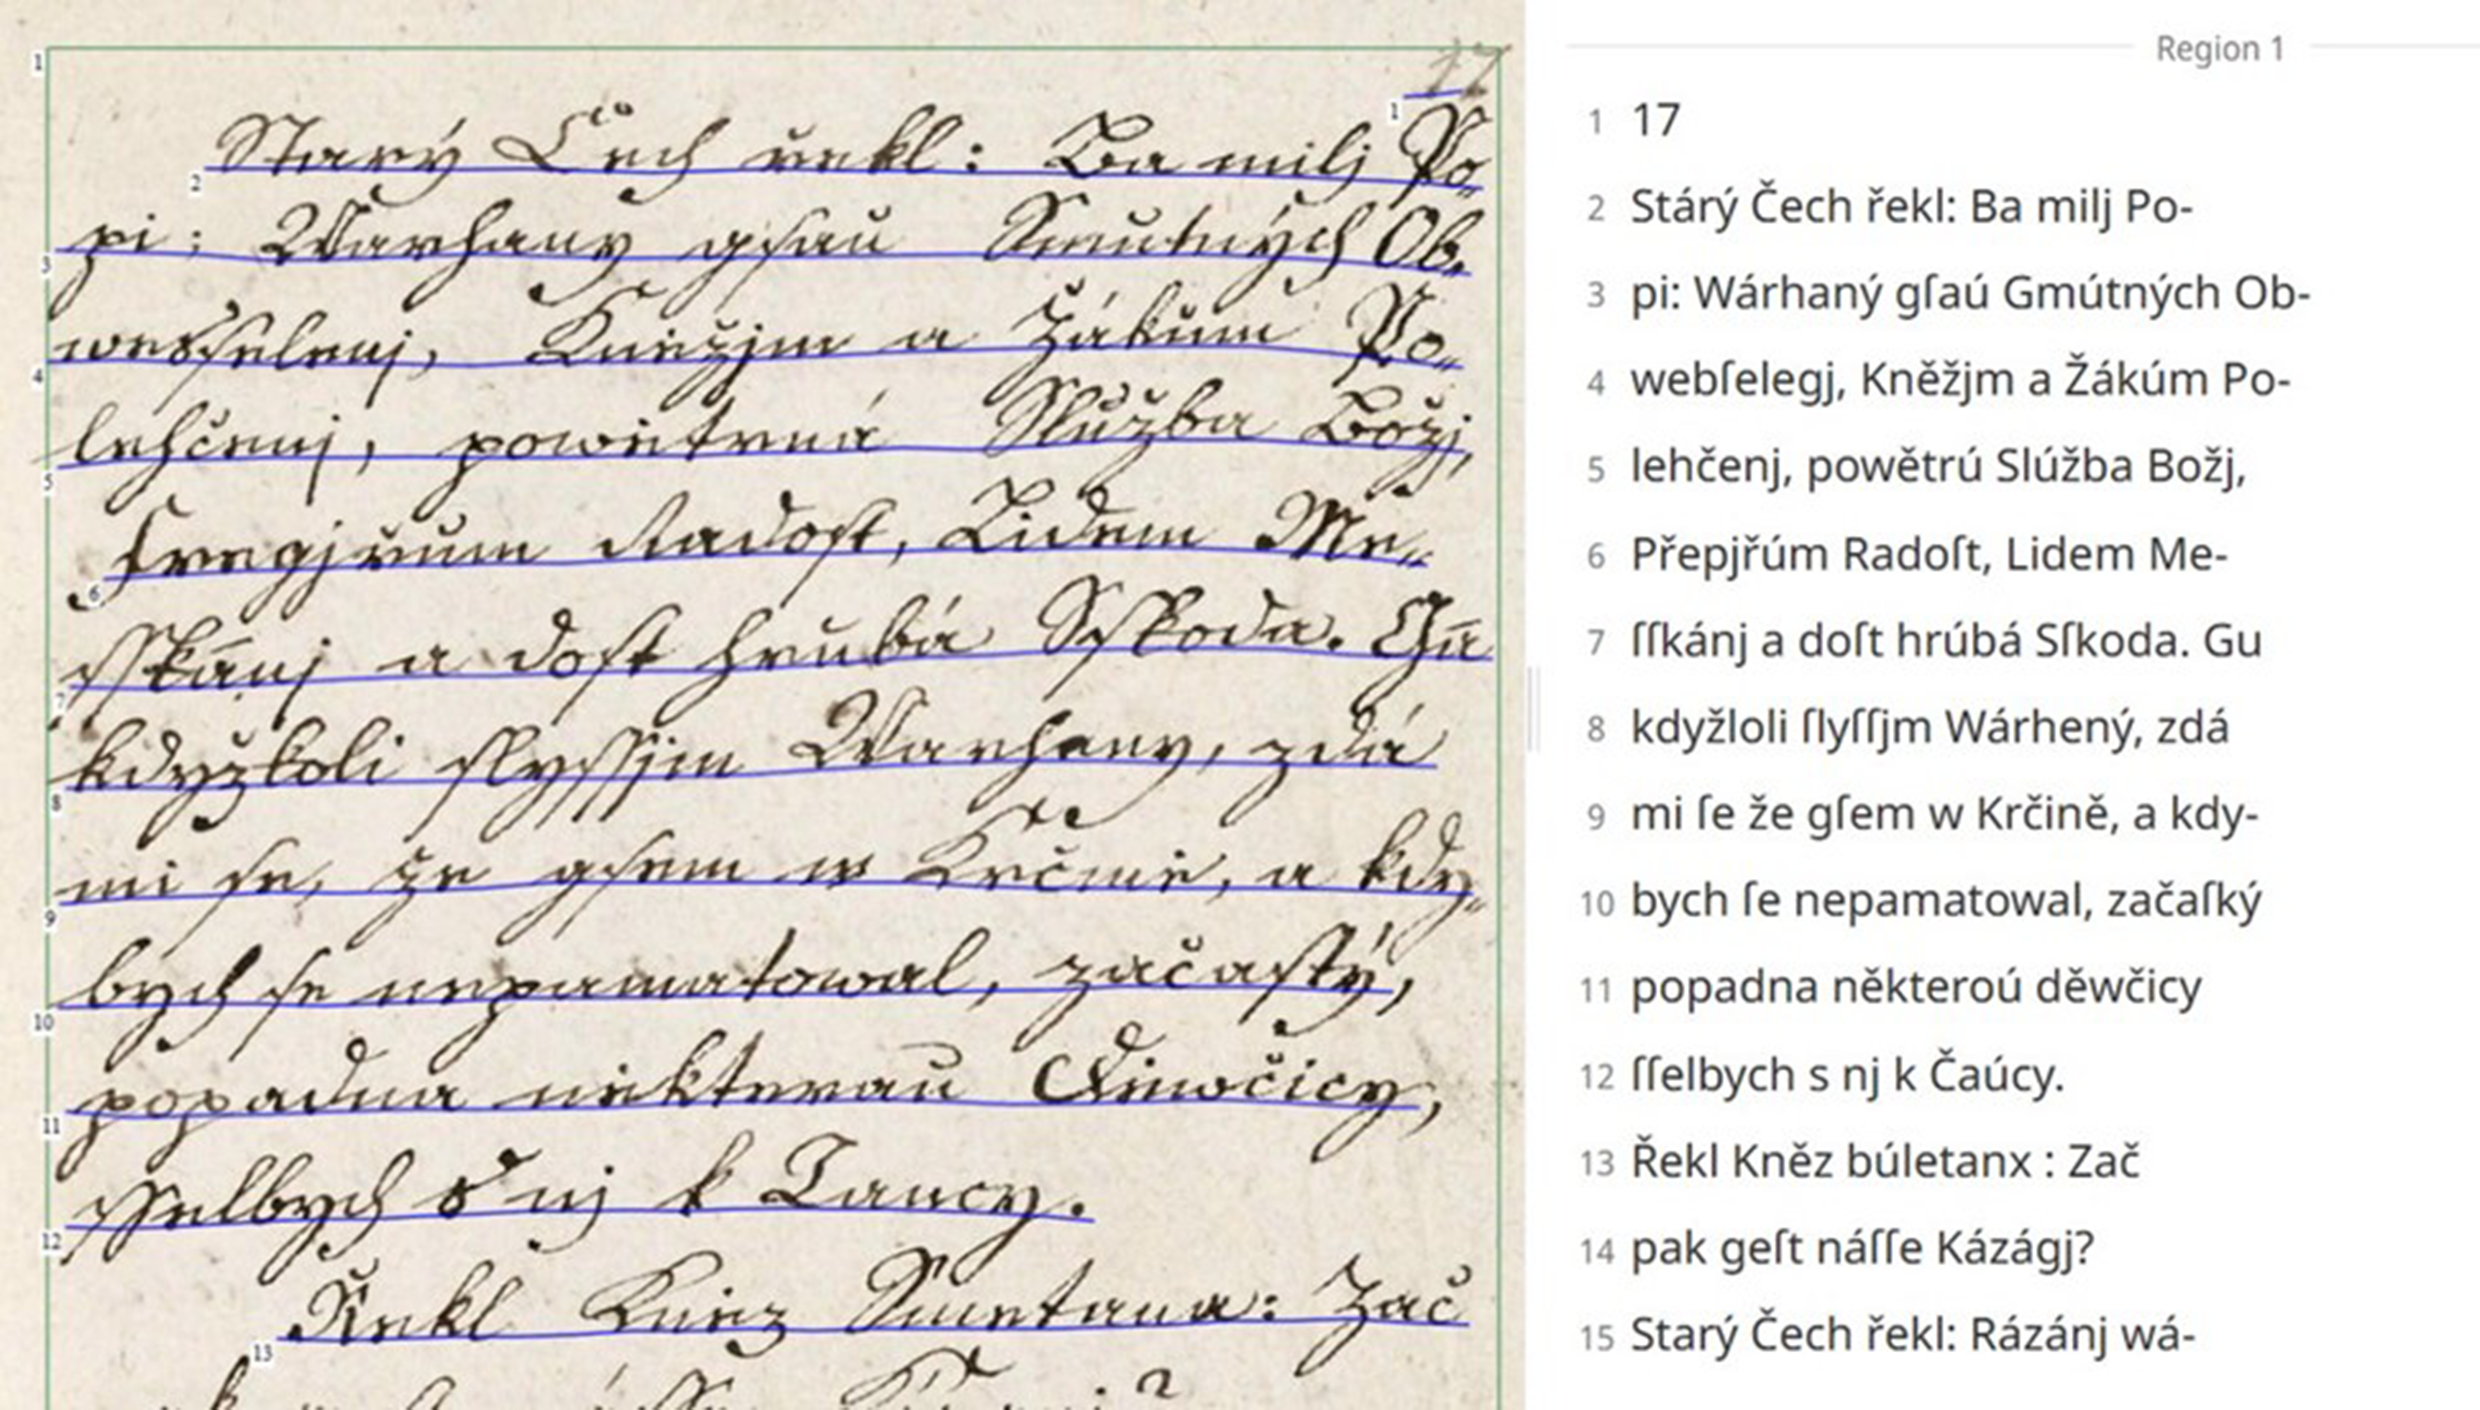 1
1 17
2 Starý Čech řekl: Ba milj Po-
3 pi: Warhany gſau Smutných Ob-
4 wesſelenj, Kněžjm a Žákům Po-
5 lehčenj, powětrná Služba Božj,
6 Fregjřům Radoſt, Lidem Me-
7 ſſkánj a doſt hrubá Sſkoda. Gá
8 kdyžkoli ſlyſſjm Warhany, zdá
9 mi ſe, že gſem w Krčmě, a kdy-
10 bych ſe nepamatowal, začaſtý,
11 popadna některau Děwčicy,
12 ſſelbych s nj k Tancy.
13 Řekl Kněz Smetana: Zač
Region 1
1 17
2 Stárý Čech řekl: Ba milj Po-
3 pi: Wárhaný gſaú Gmútných Ob-
4 webſelegj, Kněžjm a Žákúm Po-
5 lehčenj, powětrú Slúžba Božj,
6 Přepjřúm Radoſt, Lidem Me-
7 ſſkánj a doſt hrúbá Sſkoda. Gu
8 kdyžloli ſlyſſjm Wárhený, zdá
9 mi ſe že gſem w Krčině, a kdy-
10 bych ſe nepamatowal, začaſký
11 popadna některoú děwčicy
12 ſſelbych s nj k Čaúcy.
13 Řekl Kněz búletanx : Zač
14 pak geſt náſſe Kázágj?
15 Starý Čech řekl: Rázánj wá-